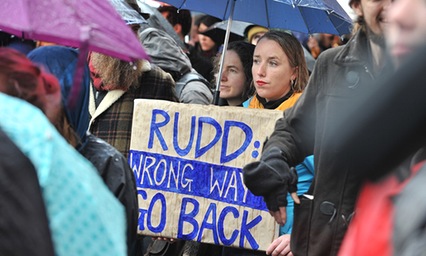 RUDD:
WRONG WAY
GO BACK